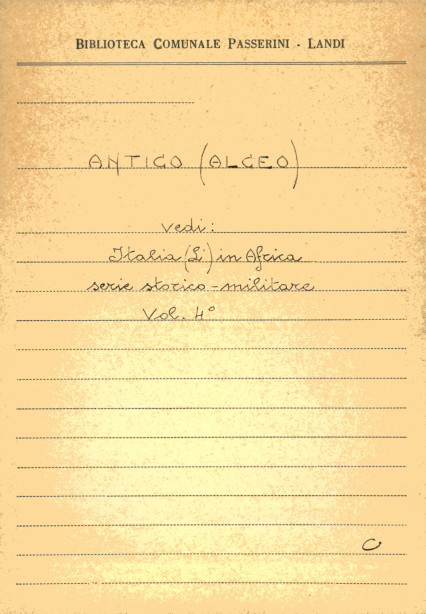 BIBLIOTECA COMUNALE PASSERINI - LANDI
ANTICO (ALCEO)
vedi:
Italia (L') in Africa
serie storico-militare
Vol. 4°
C